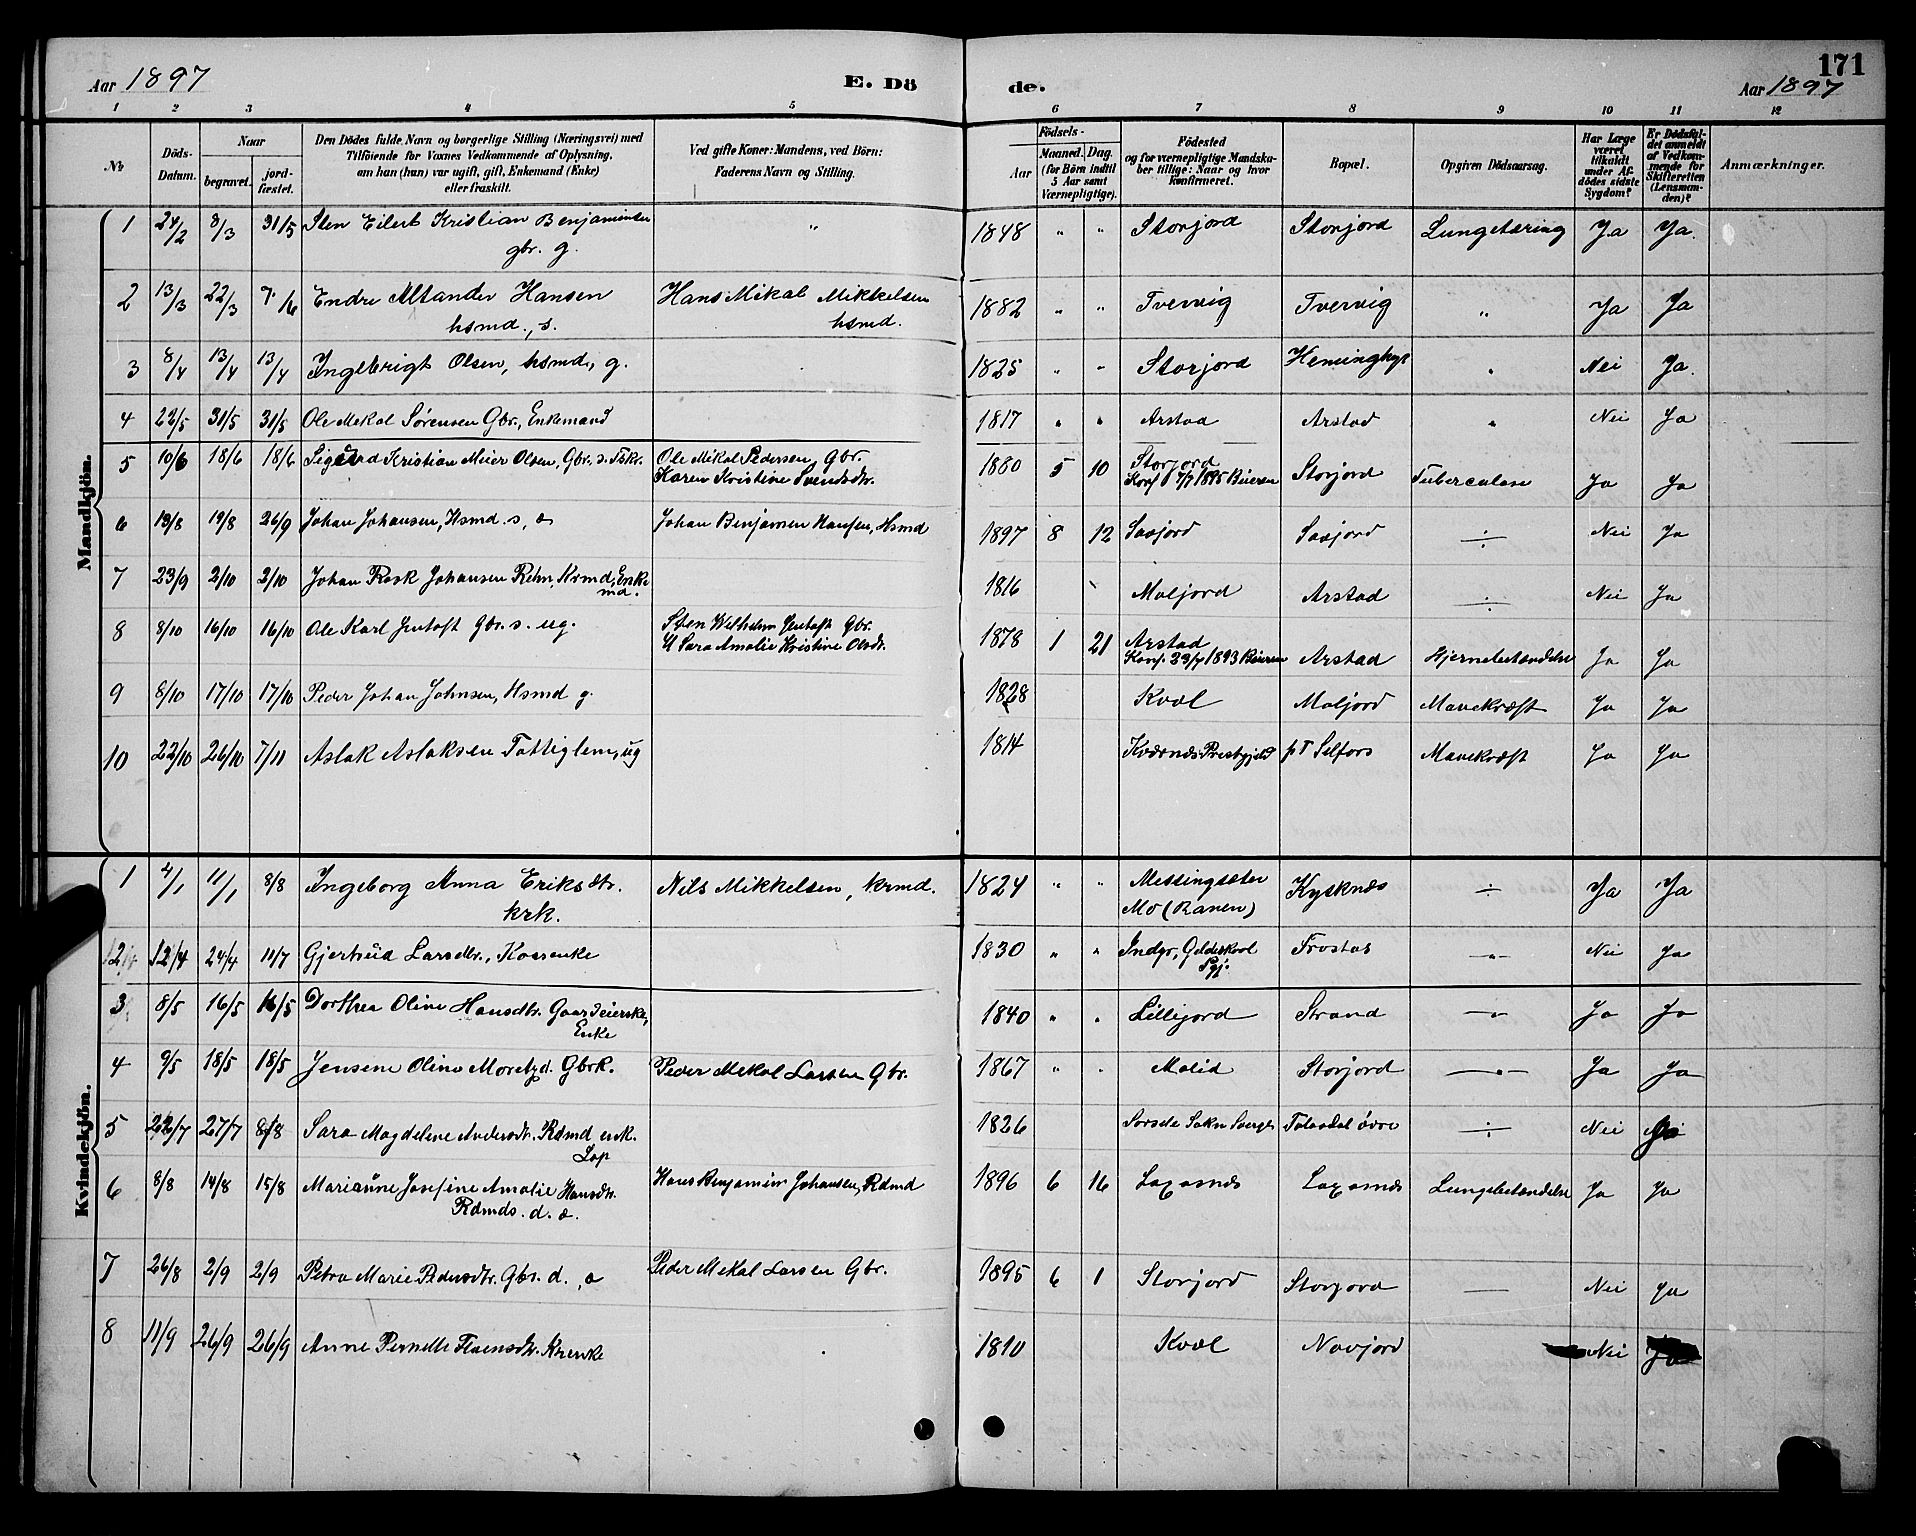 171
Aar 1897 E. Dö de. Aar 1897
1 2 3 4 5 6 7 8 9 10 11 12
No Döds-Datum. Naar begravet. jord-fæstet. Den Dödes fulde Navn og borgerlige Stilling (Næringsvei) med Tilföiende for Voxnes Vedkommende af Oplysning, om han (hun) var ugift, gift, Enkemand (Enke) eller fraskilt. Ved gifte Koner: Mandens, ved Börn: Faderens Navn og Stilling. Födsels- Aar Maaned. Dag. (for Börn indtil 5 Aar samt Værnepligtige). Födested og for værnepligtige Mandskaber tillige: Naar og hvor konfirmeret. Bopæl. Opgiven Dödsaarsag. Har Læge været tilkaldt under Afdödes sidste Sygdom? Er Dödsfaldet anmeldt af Vedkommende for Skifteretten (Lensmanden)? Anmærkninger.
Mandkjön.
1 24/2 8/3 31/5 Sten Eilert Kristian Benjaminsen gbr. g. " 1848 " " Storjord Storjord Lungetæring Ja Ja.
2 13/3 22/3 7/6 Endre Hansen hsmd., s. Hans Mikal Mikkelsen hsmd. 1882 " " Tvervig Tvervig " Ja Ja
3 8/4 13/4 13/4 Ingebrigt Olsen, hsmd, g. 1825 " " Storjord " Nei Ja.
4 22/5 31/5 31/5 Ole Mikal Sørensen Gbr., Enkemand 1817 " " Arstad Arstad " Nei Ja
5 10/6 18/6 18/6 Sigurd Kristian Meier Olsen, Gbr. s. Fskr. Ole Mikal Pedersen, Gbr. Karen Kristine Svendsdtr. 1880 5 10 Storjord Konf. 7/7 1895 Beieren Storjord Tuberculose Ja Ja
6 19/8 19/8 26/9 Johan Johansen, Hsmd. s, æ Johan Benjamin Hansen, Hsmd 1897 8 12 Savjord Savjord ÷ Nei Ja
7 23/9 2/10 2/10 Johan Rask Johansen Rehn, Krmd, Enkemd. 1816 Moljord Arstad ÷ Nei Ja
8 8/10 16/10 16/10 Ole Karl Jentoft Gbr. s. ug. Sten Wilhelm Jentoft Gbr. Sara Amalie Kristine Olsdr. 1878 1 21 Arstad Konf. 23/7 1893 Beieren Arstad Hjernebetændelse Ja Ja
9 8/10 17/10 17/10 Peder Johan Johnsen, Hsmd g. 1828 Kvæl Moljord Mavekræft Ja Ja
10 22/10 26/10 7/11 Aslak Aslaksen Fattiglem, ug 1814 Kværnes Prestgjeld pT Selfors Mavekræft Ja Ja
Kvindekjön.
1 4/1 11/1 8/8 Ingeborg Anna Eriksdtr. krk. Nils Mikkelsen, krmd. 1824 " " Messingsæter Mo (Ranen) Kysknæs ÷ Ja Ja
2 12/4 24/4 11/7 Gjertrud Larsdtr., Kaarenke 1830 " " Indgr, Gildeskaal Pgj. Frostas " Nei Ja
3 8/5 16/5 16/5 Dorthea Oline Hansdtr. Gaardeierske, Enke 1840 " " Lillejord Strand " Ja Ja
4 9/5 18/5 18/5 Jensine Oline Moretzd. Gbrk. Peder Mikal Larsen Gbr. 1867 " " Molid Storjord " Ja Ja
5 22/7 27/7 8/8 Sara Magdelene Andersdtr. Rdmd enk. Lap 1826 Sorsele Sokn Sverge Tolaadal övre ÷ Nei
6 8/8 14/8 15/8 Marianne Josefine Amalie Hansdtr. Rdmds. d. æ. Hans Benjamin Johansen, Rdmd 1896 6 16 Laxosnæs Laxosnæs Lungebetændelse Ja Ja
7 26/8 2/9 2/9 Petra Marie Pedersdtr. Gbr. d., æ Peder Mikal Larsen Gbr. 1895 6 1 Storjord Storjord — Nei Ja
8 11/9 26/9 26/9 Anne Pernelle 1810 Kvæl Novjord Nei Ja